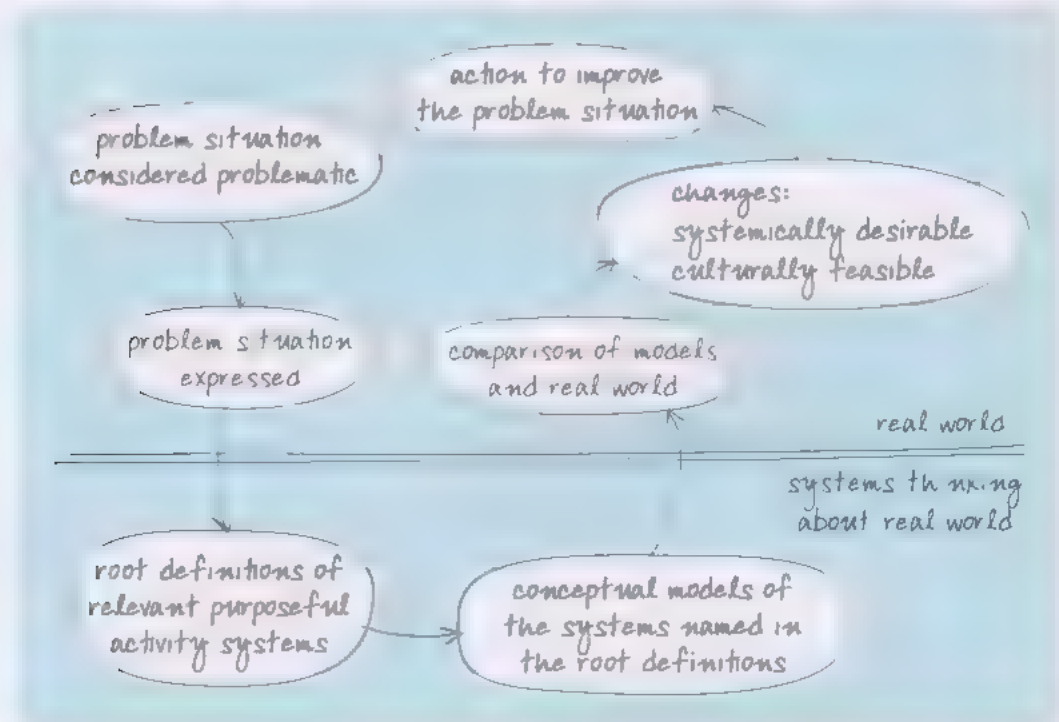 action to improve
the problem situation
problem situation
considered problematic
changes:
systemically desirable
culturally feasible
problem situation
expressed
comparison of models
and real world
real world
systems thinking
about real world
root definitions of
relevant purposeful
activity systems
conceptual models of
the systems named in
the root definitions